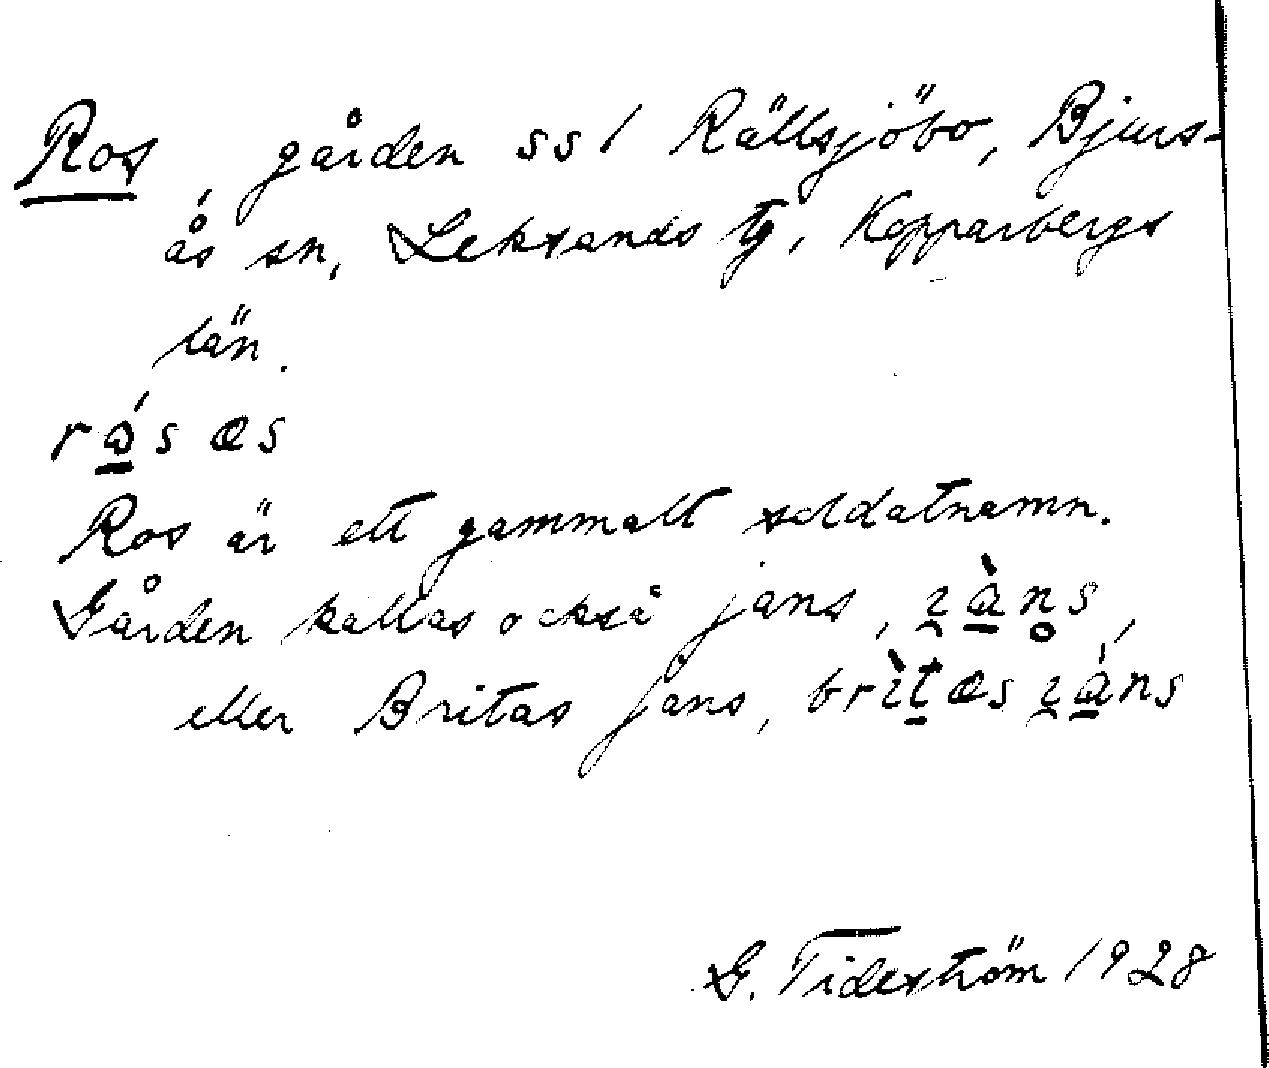 Ros, gården ss1 Rällsjöbo, Bjurs-
ås sn, Leksands tg, Kopparbergs
län.
rósæs
Ros är ett gammalt soldatnamn.
Gården kallas också jans, ɿàn̥s,
eller Britas jans, brìtæs ɿáns
G. Tideström 1928